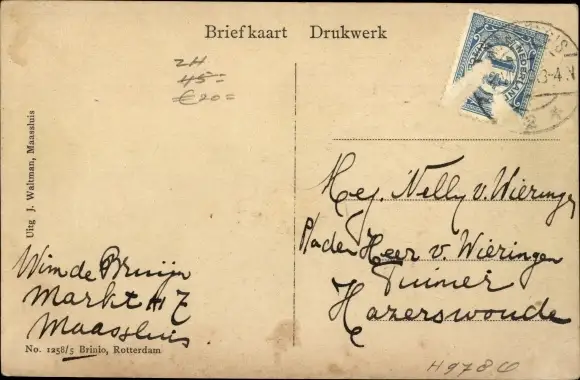 Briefkaart Drukwerk
ZH
45=
€20=
1
NEDERLAND
3-4 N
2
Uitg J. Waltman, Maassluis
Mej. Nelly v. Wieringen
P/a den Heer v. Wieringen
Tuinier
Hazerswoude
Wim de Bruijn
Markt H 7
Maassluis
No. 1258/5 Brinio, Rotterdam
H978